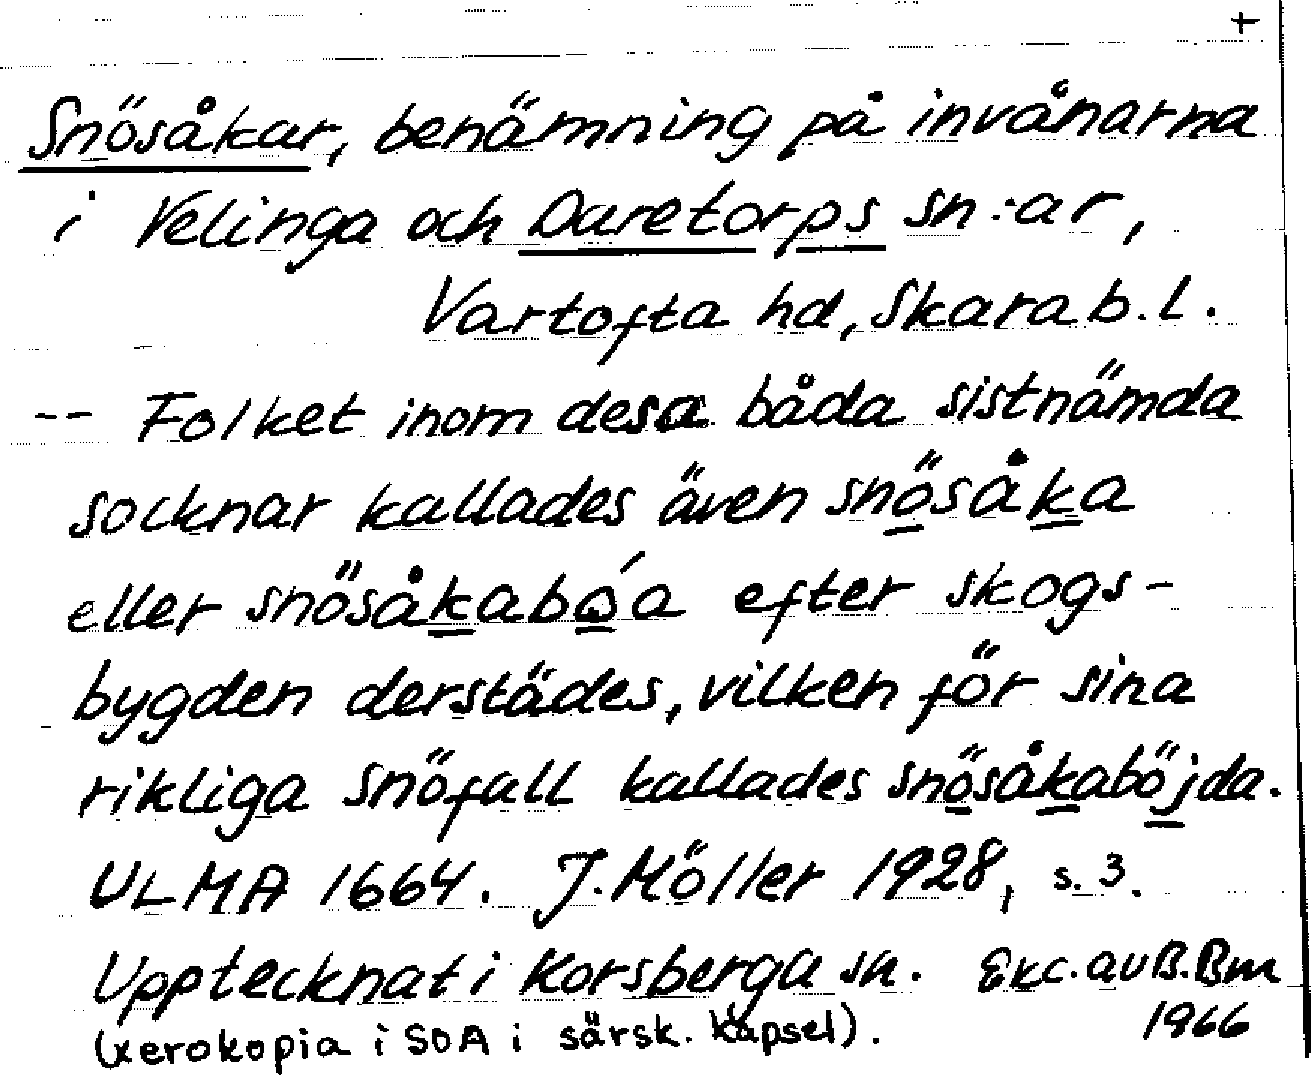 +
Snösåkar, benämning på invånarna
i Velinga och Daretorps sn:ar,
Vartofta hd, Skarab.l.
-- Folket inom desa båda sistnämda
socknar kallades även snösåka
eller snösåkabǿa efter skogs-
bygden derstädes, vilken för sina
rikliga snöfall kallades snösåkaböjda.
ULMA 1664. J. Möller 1928, s. 3.
Upptecknat i Korsberga sn. Exc. av B. Bm
(xerokopia i SOA i särsk. kapsel). 1966